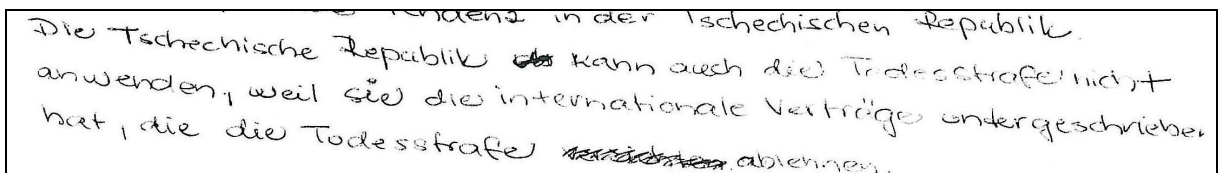 Tendenz in der Tschechischen Republik.
Die Tschechische Republik kann auch die Todesstrafe nicht
anwenden, weil sie die internationale Verträge untergeschrieben
hat, die die Todesstrafe ablehnen.